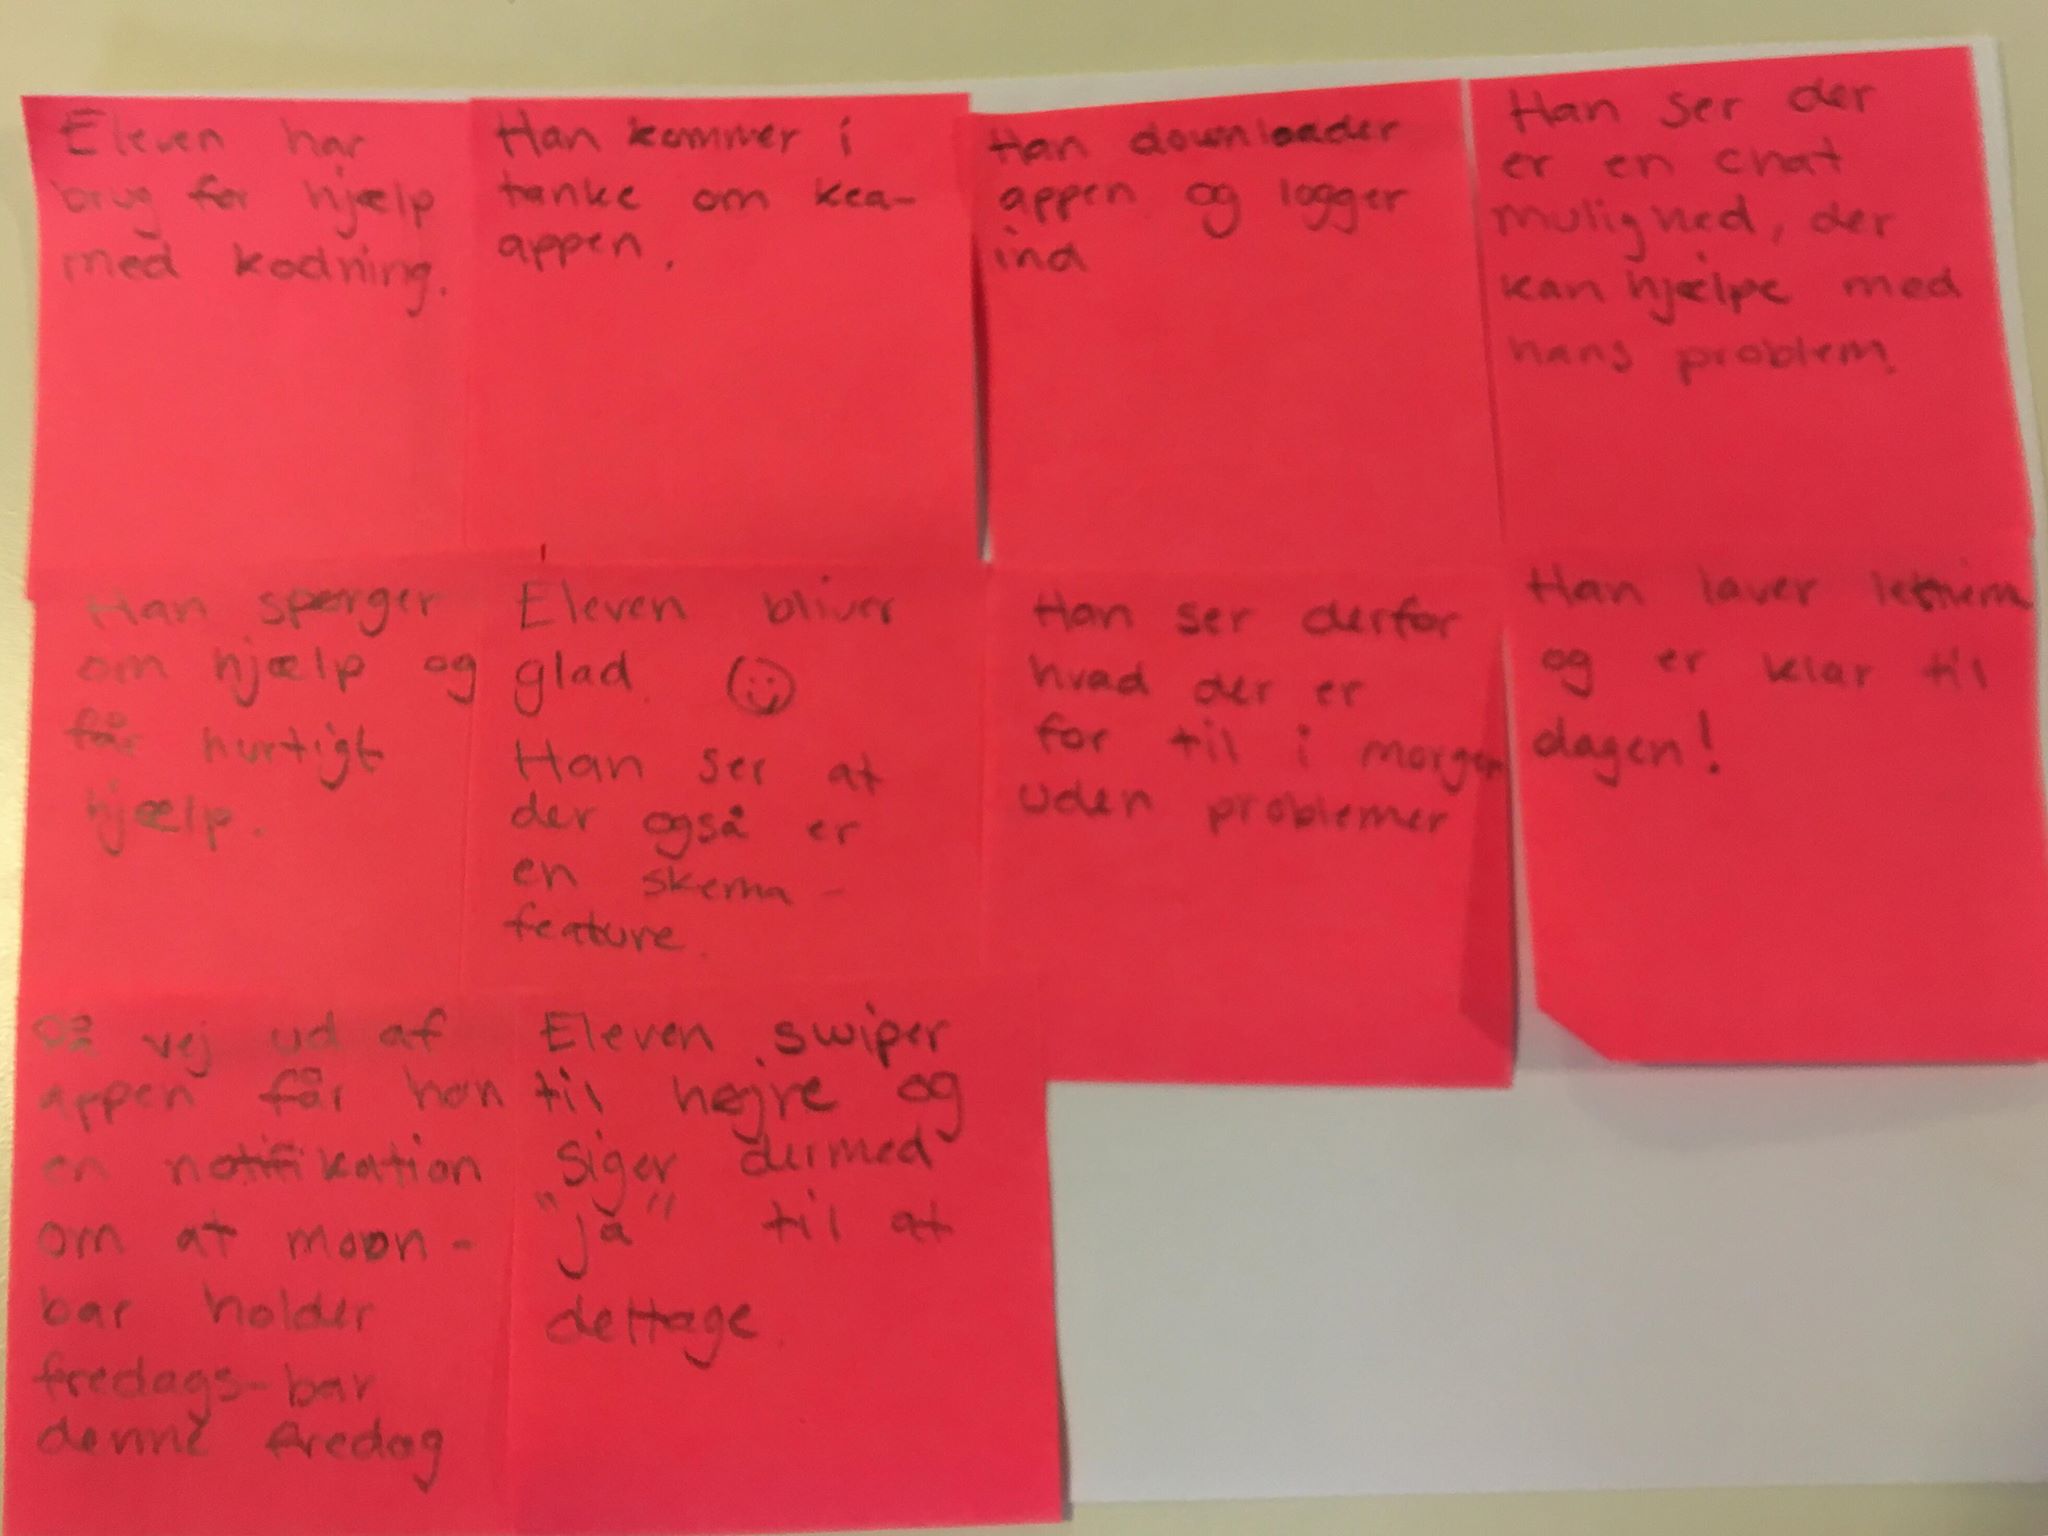 Eleven har
brug for hjælp
med kodning.
Han kommer i
tanke om kea-
appen.
Han downloader
appen og logger
ind
Han ser der
er en chat
mulighed, der
kan hjælpe med
hans problem.
Han spørger
om hjælp og
får hurtigt
hjælp.
Eleven bliver
glad. ☺
Han ser at
der også er
en skema-
feature.
Han ser derfor
hvad der er
for til i morgen
uden problemer
Han laver
og er klar til
dagen!
På vej ud af
appen får han
en notifikation
om at moon-
bar holder
fredags-bar
denne fredag
Eleven swiper
til højre og
siger dermed
"ja" til at
deltage.